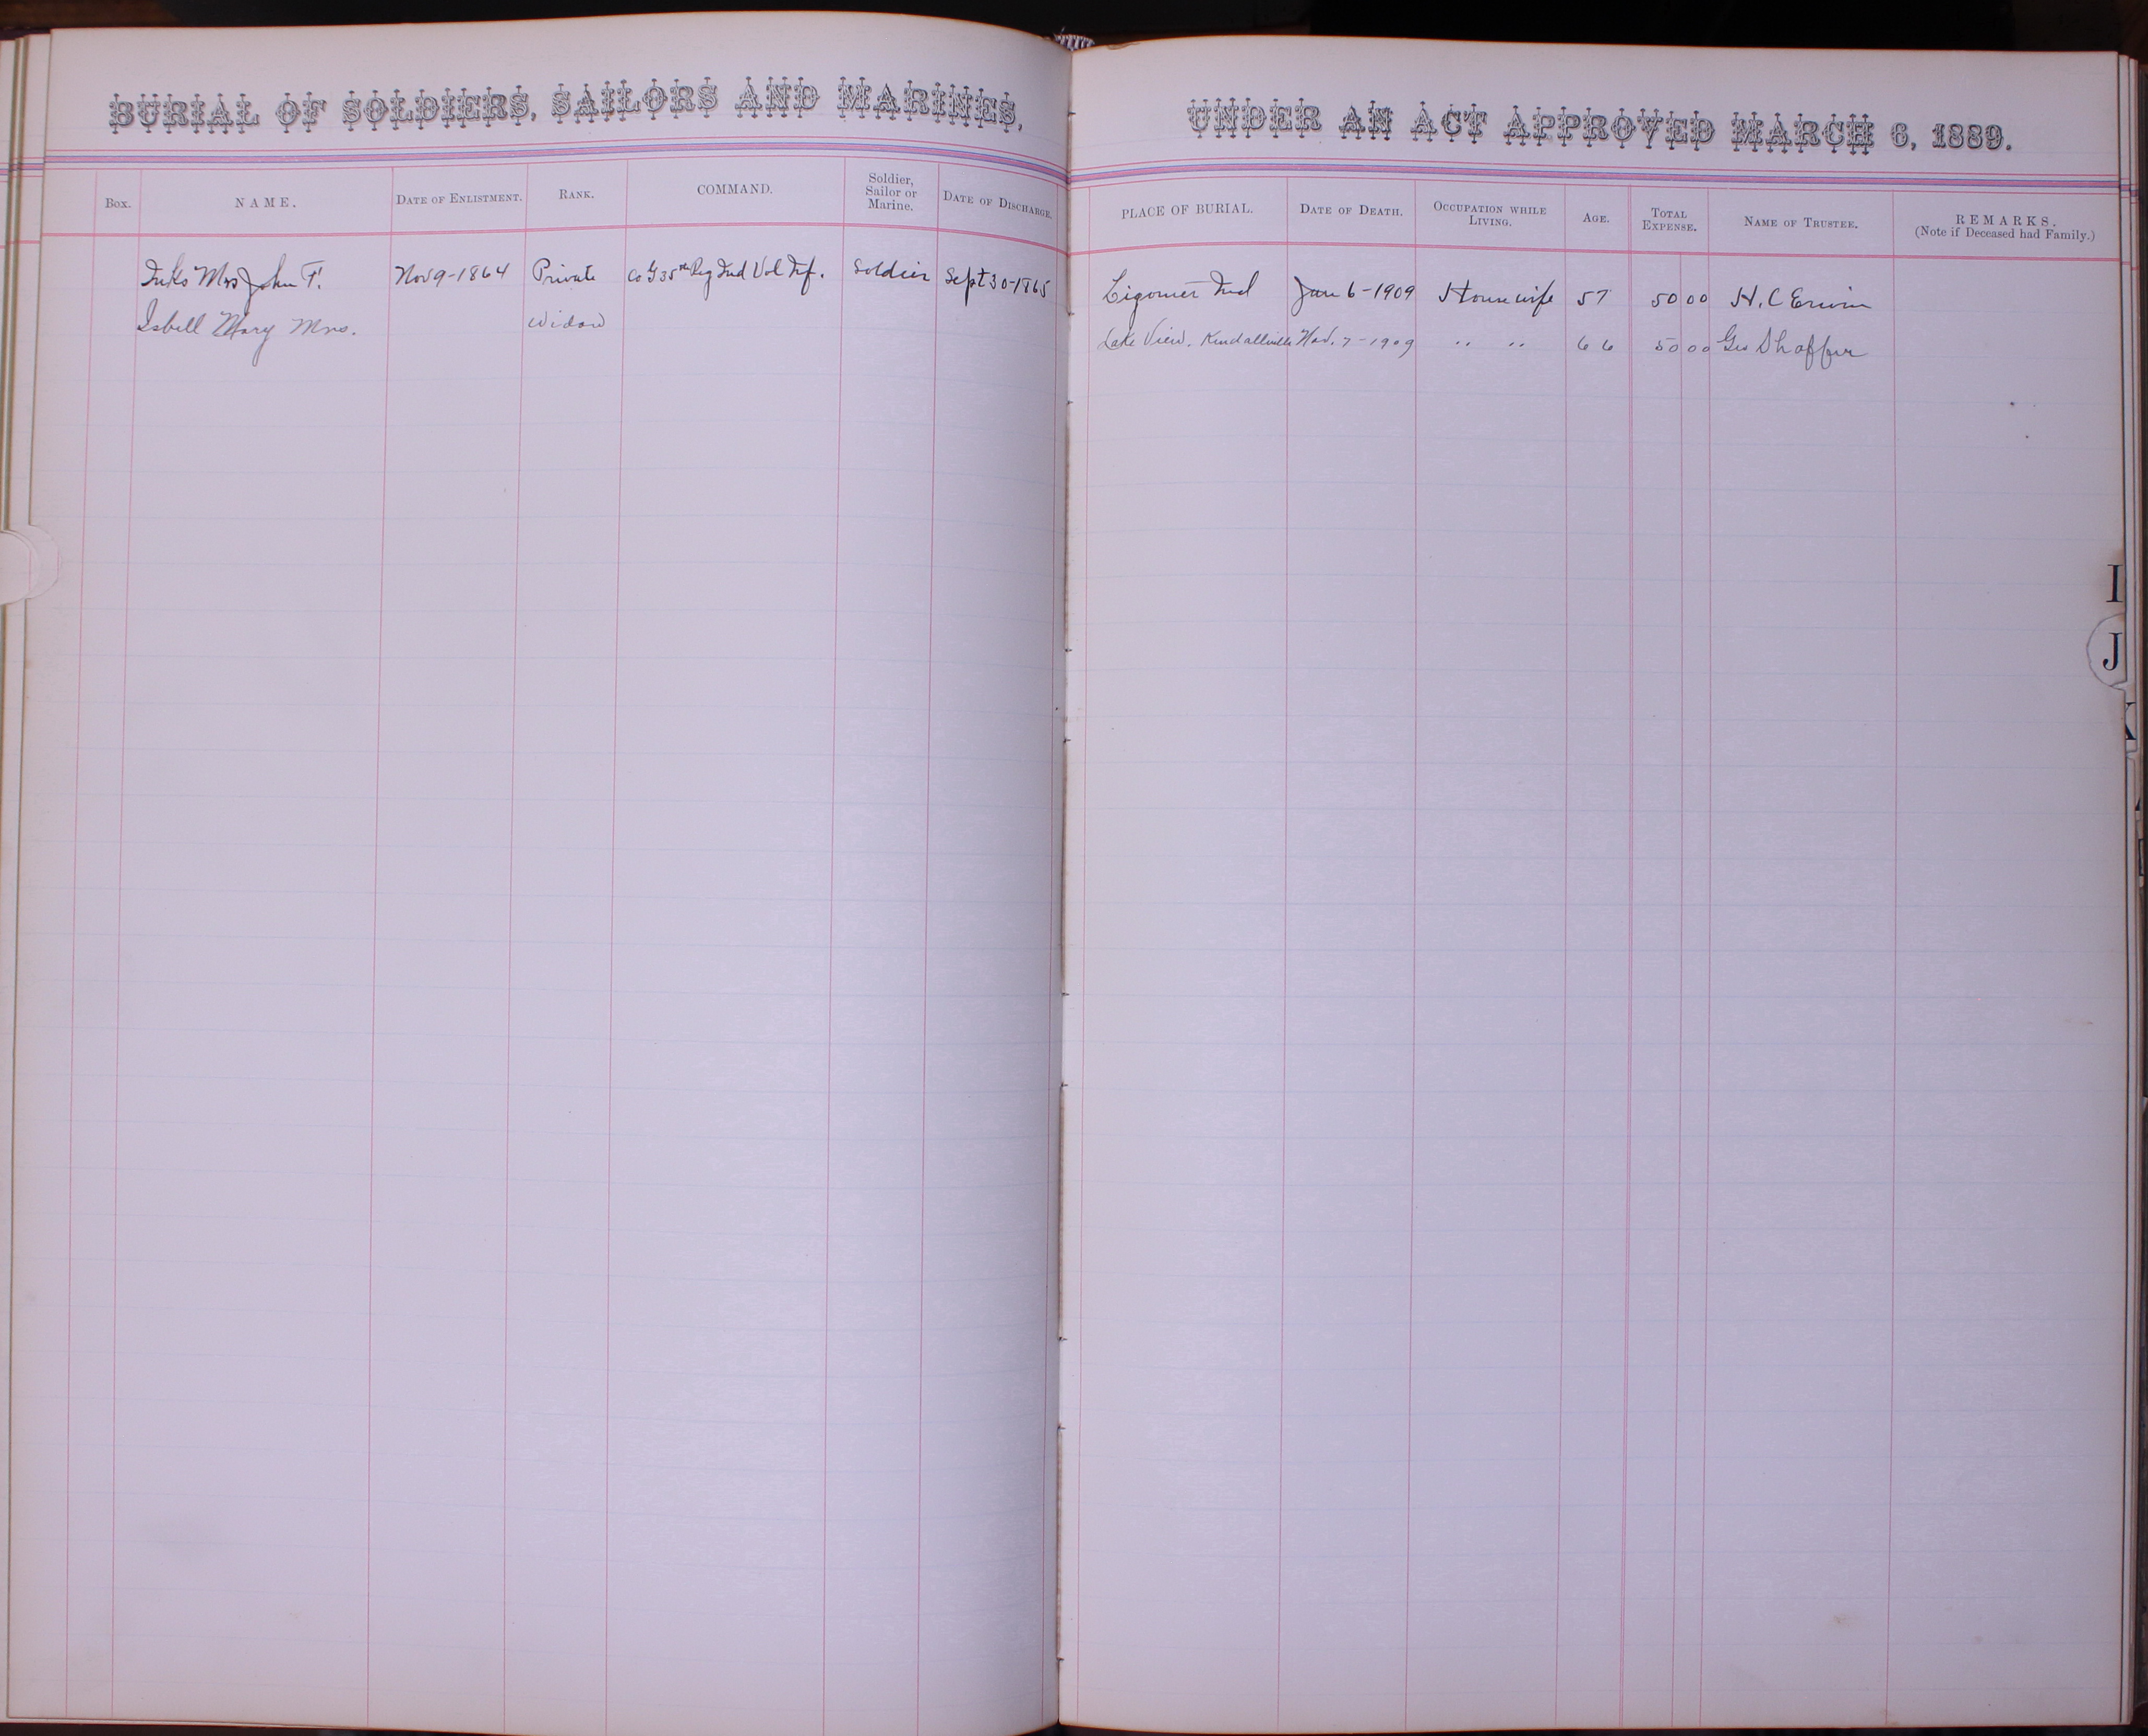 BURIAL OF SOLDIERS, SAILORS AND MARINES, UNDER AN ACT APPROVED MARCH 6, 1889.
Box. NAME. DATE OF ENLISTMENT. RANK. COMMAND. Soldier, Sailor or Marine. DATE OF DISCHARGE. PLACE OF BURIAL. DATE OF DEATH. OCCUPATION WHILE LIVING. AGE. TOTAL EXPENSE. NAME OF TRUSTEE. REMARKS. (Note if Deceased had Family.)
Inks Mrs John T. Nov 9-1864 Private Co G 35th Reg Ind Vol Inf. Soldier Sept 30-1865 Ligonier Ind Jan 6-1909 Housewife 57 50 00 H. C Erwin
Isbell Mary Mrs. Widow Lake View. Kendallville Nov. 7-1909 " " 66 50 00 Geo Shaffer
I
J
K